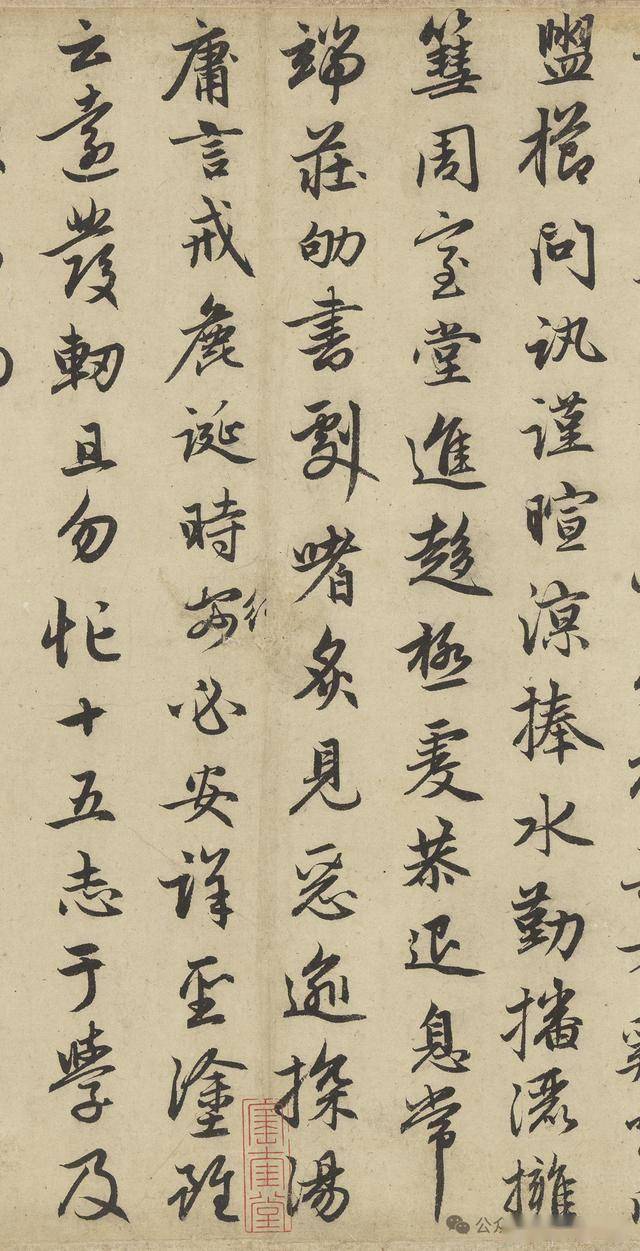 盥櫛問訊謹暄涼捧水勤播灑擁
篲周室堂進趍極虔恭退息常
端莊劬書劇嗜炙見惡逾探湯
庸言戒麁誕時行必安詳聖塗雖
云遠發軔且勿忙十五志于學及